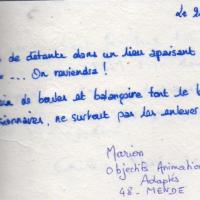 Le 2
de détente dans un lieu apaisant
... On reviendra !
de boules et balançoire font le b
ionnaires, ne surtout pas les enlever
Marion
Objectifs Animation
Adaptés
48 - MENDE